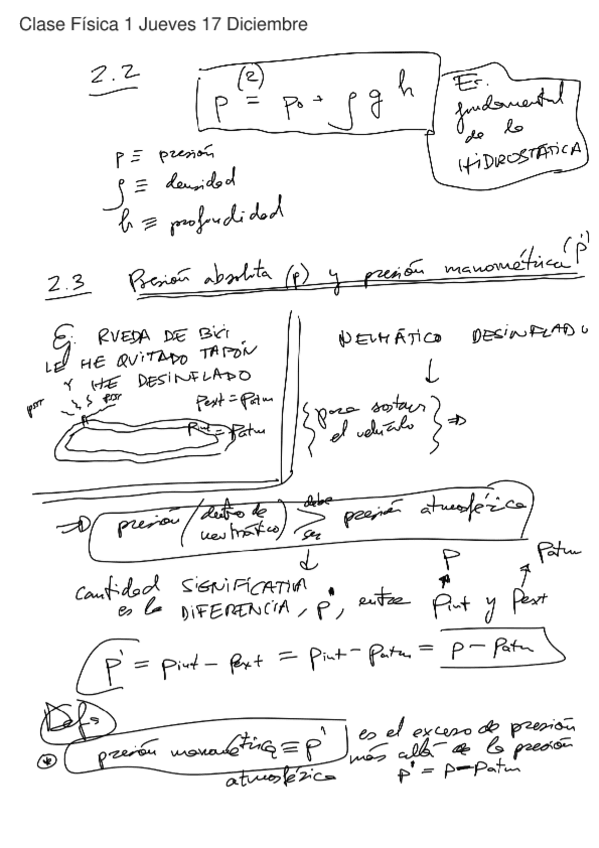 Clase Física 1 Jueves 17 Diciembre
2.2
(2)
p = p₀ + ρ g h
Ec. fundamental de la HIDROSTÁTICA
P ≡ presión
ρ ≡ densidad
h ≡ profundidad
2.3 Presión absoluta (p) y presión manométrica (p')
Ej RUEDA DE BICI
LE HE QUITADO TAPÓN
Y HE DESINFLADO
prr prr
Pext = Patm
Pint = Patm
NEUMÁTICO DESINFLADO
↓
{para sostener el vehículo} ⇒
⇒ presión (dentro de neumático) > debe ser presión atmosférica
↓
cantidad SIGNIFICATIVA
es la DIFERENCIA, p', entre Pint y Pext
P Patm
p' = pint - pext = pint - patm = p - patm
Defs
* presión manométrica ≡ p' es el exceso de presión
más allá de la presión
atmosférica p' = p - patm